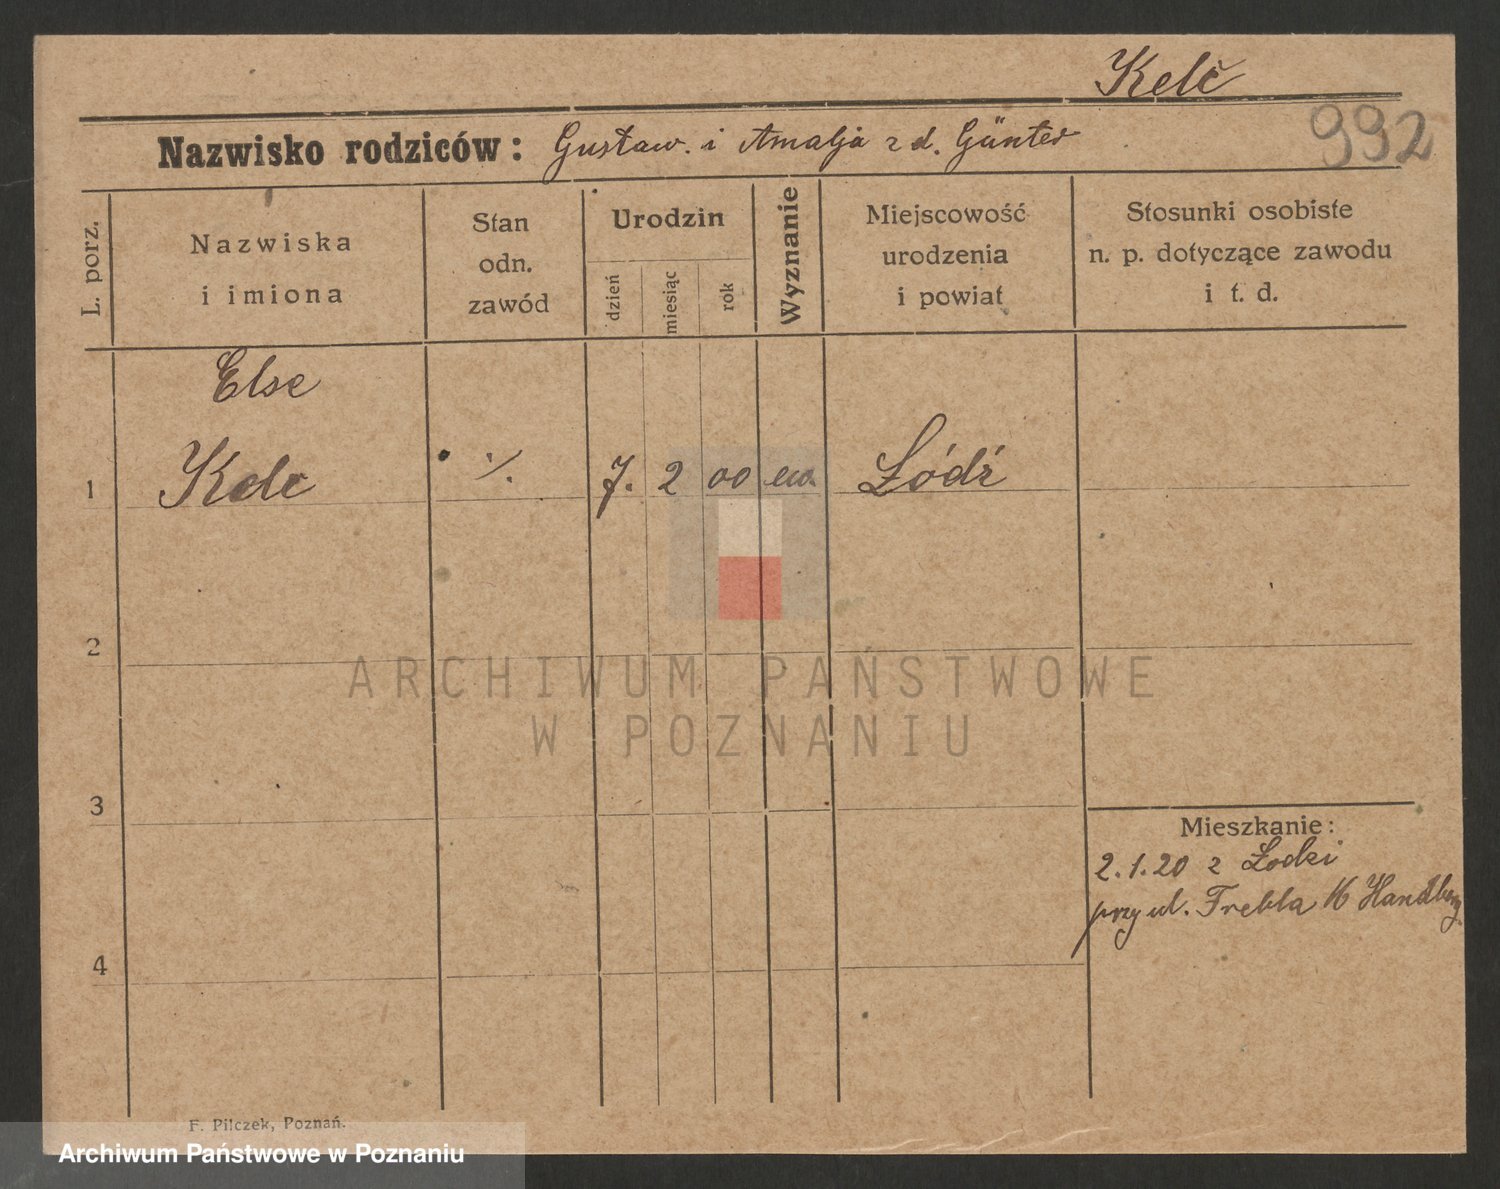 Kelč
992
Nazwisko rodziców: Gustaw. i Amalja z d. Günter
L. porz.
Nazwiska
i imiona
Stan
odn.
zawód
Urodzin
dzień
miesiąc
rok
Wyznanie
Miejscowość
urodzenia
i powiat
Stosunki osobiste
n. p. dotyczące zawodu
i t. d.
Else
1 Kelc ·/. 7. 2 00 ew. Łódź
2
ARCHIWUM PAŃSTWOWE
W POZNANIU
3
Mieszkanie:
2.1.20 z Łodzi
przy ul. Trebla 16
4
F. Pilczek, Poznań.
Archiwum Państwowe w Poznaniu